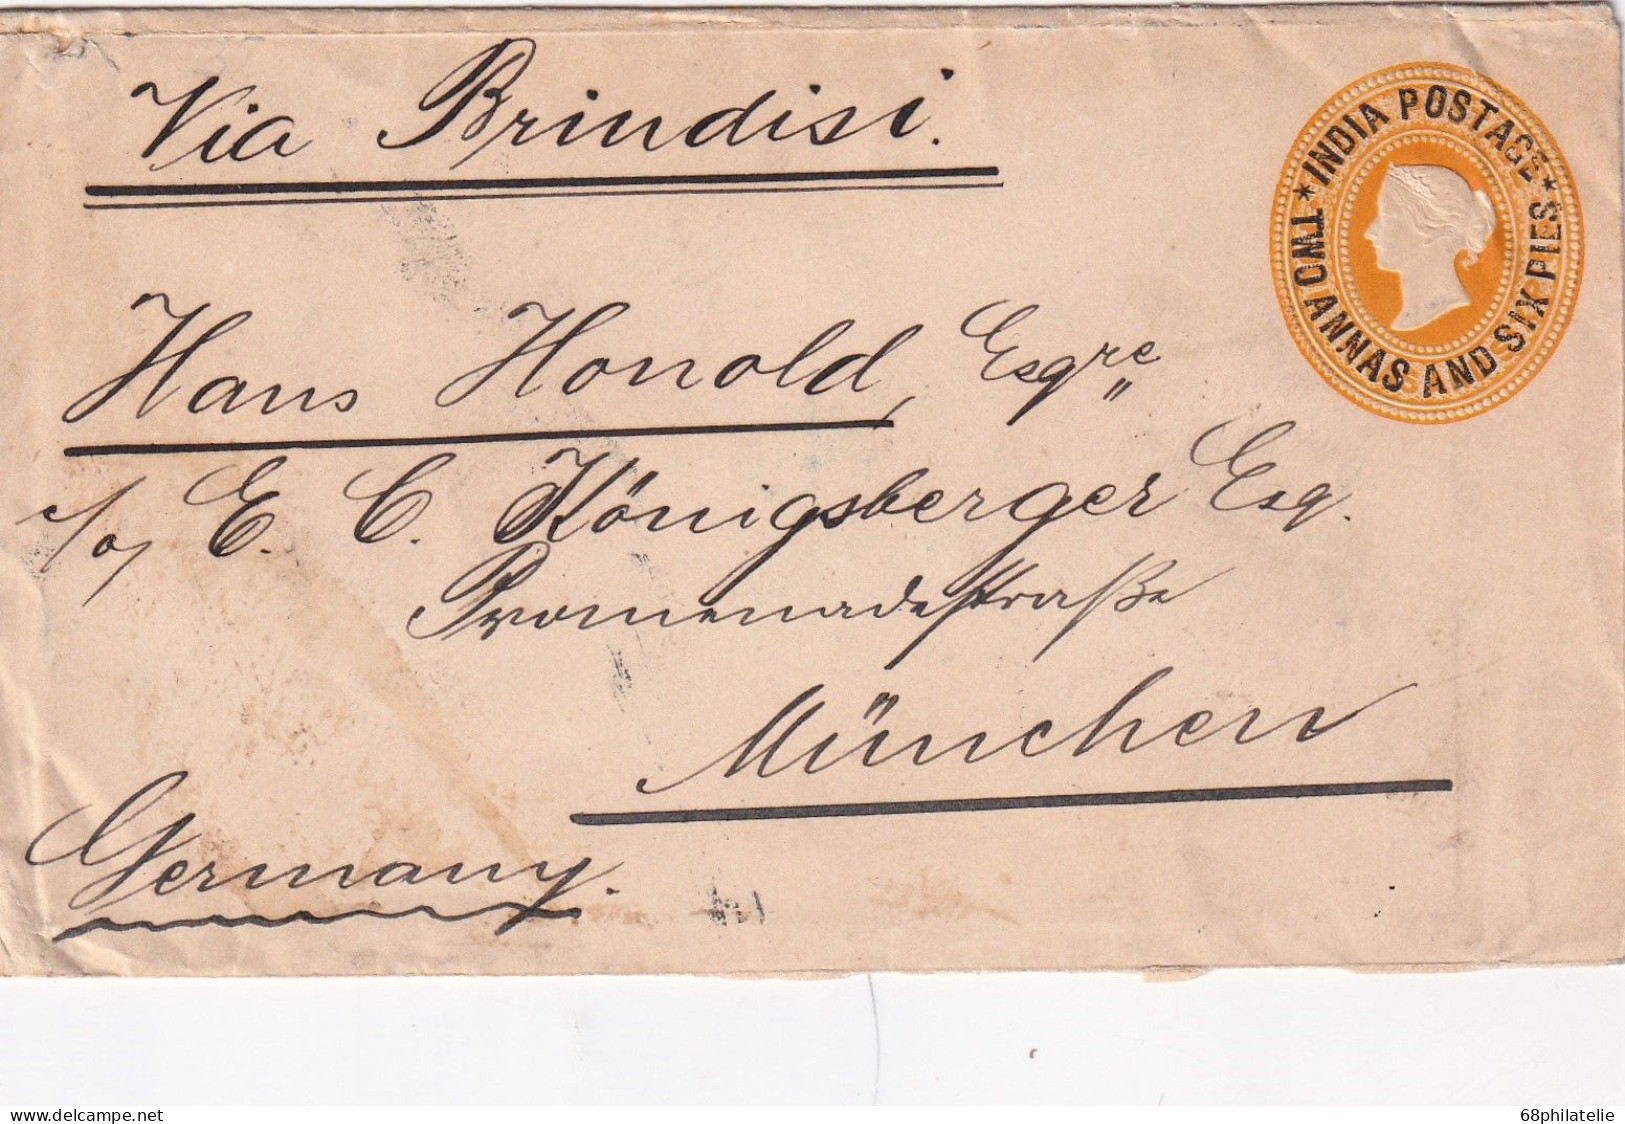 Via Brindisi.
* INDIA POSTAGE *
TWO ANNAS AND SIX PIES
Hans Honold, Esqre
c/o E. C. Königsberger Esq.
Promenadestraße
München
Germany.
delcampe.net
68philatelie